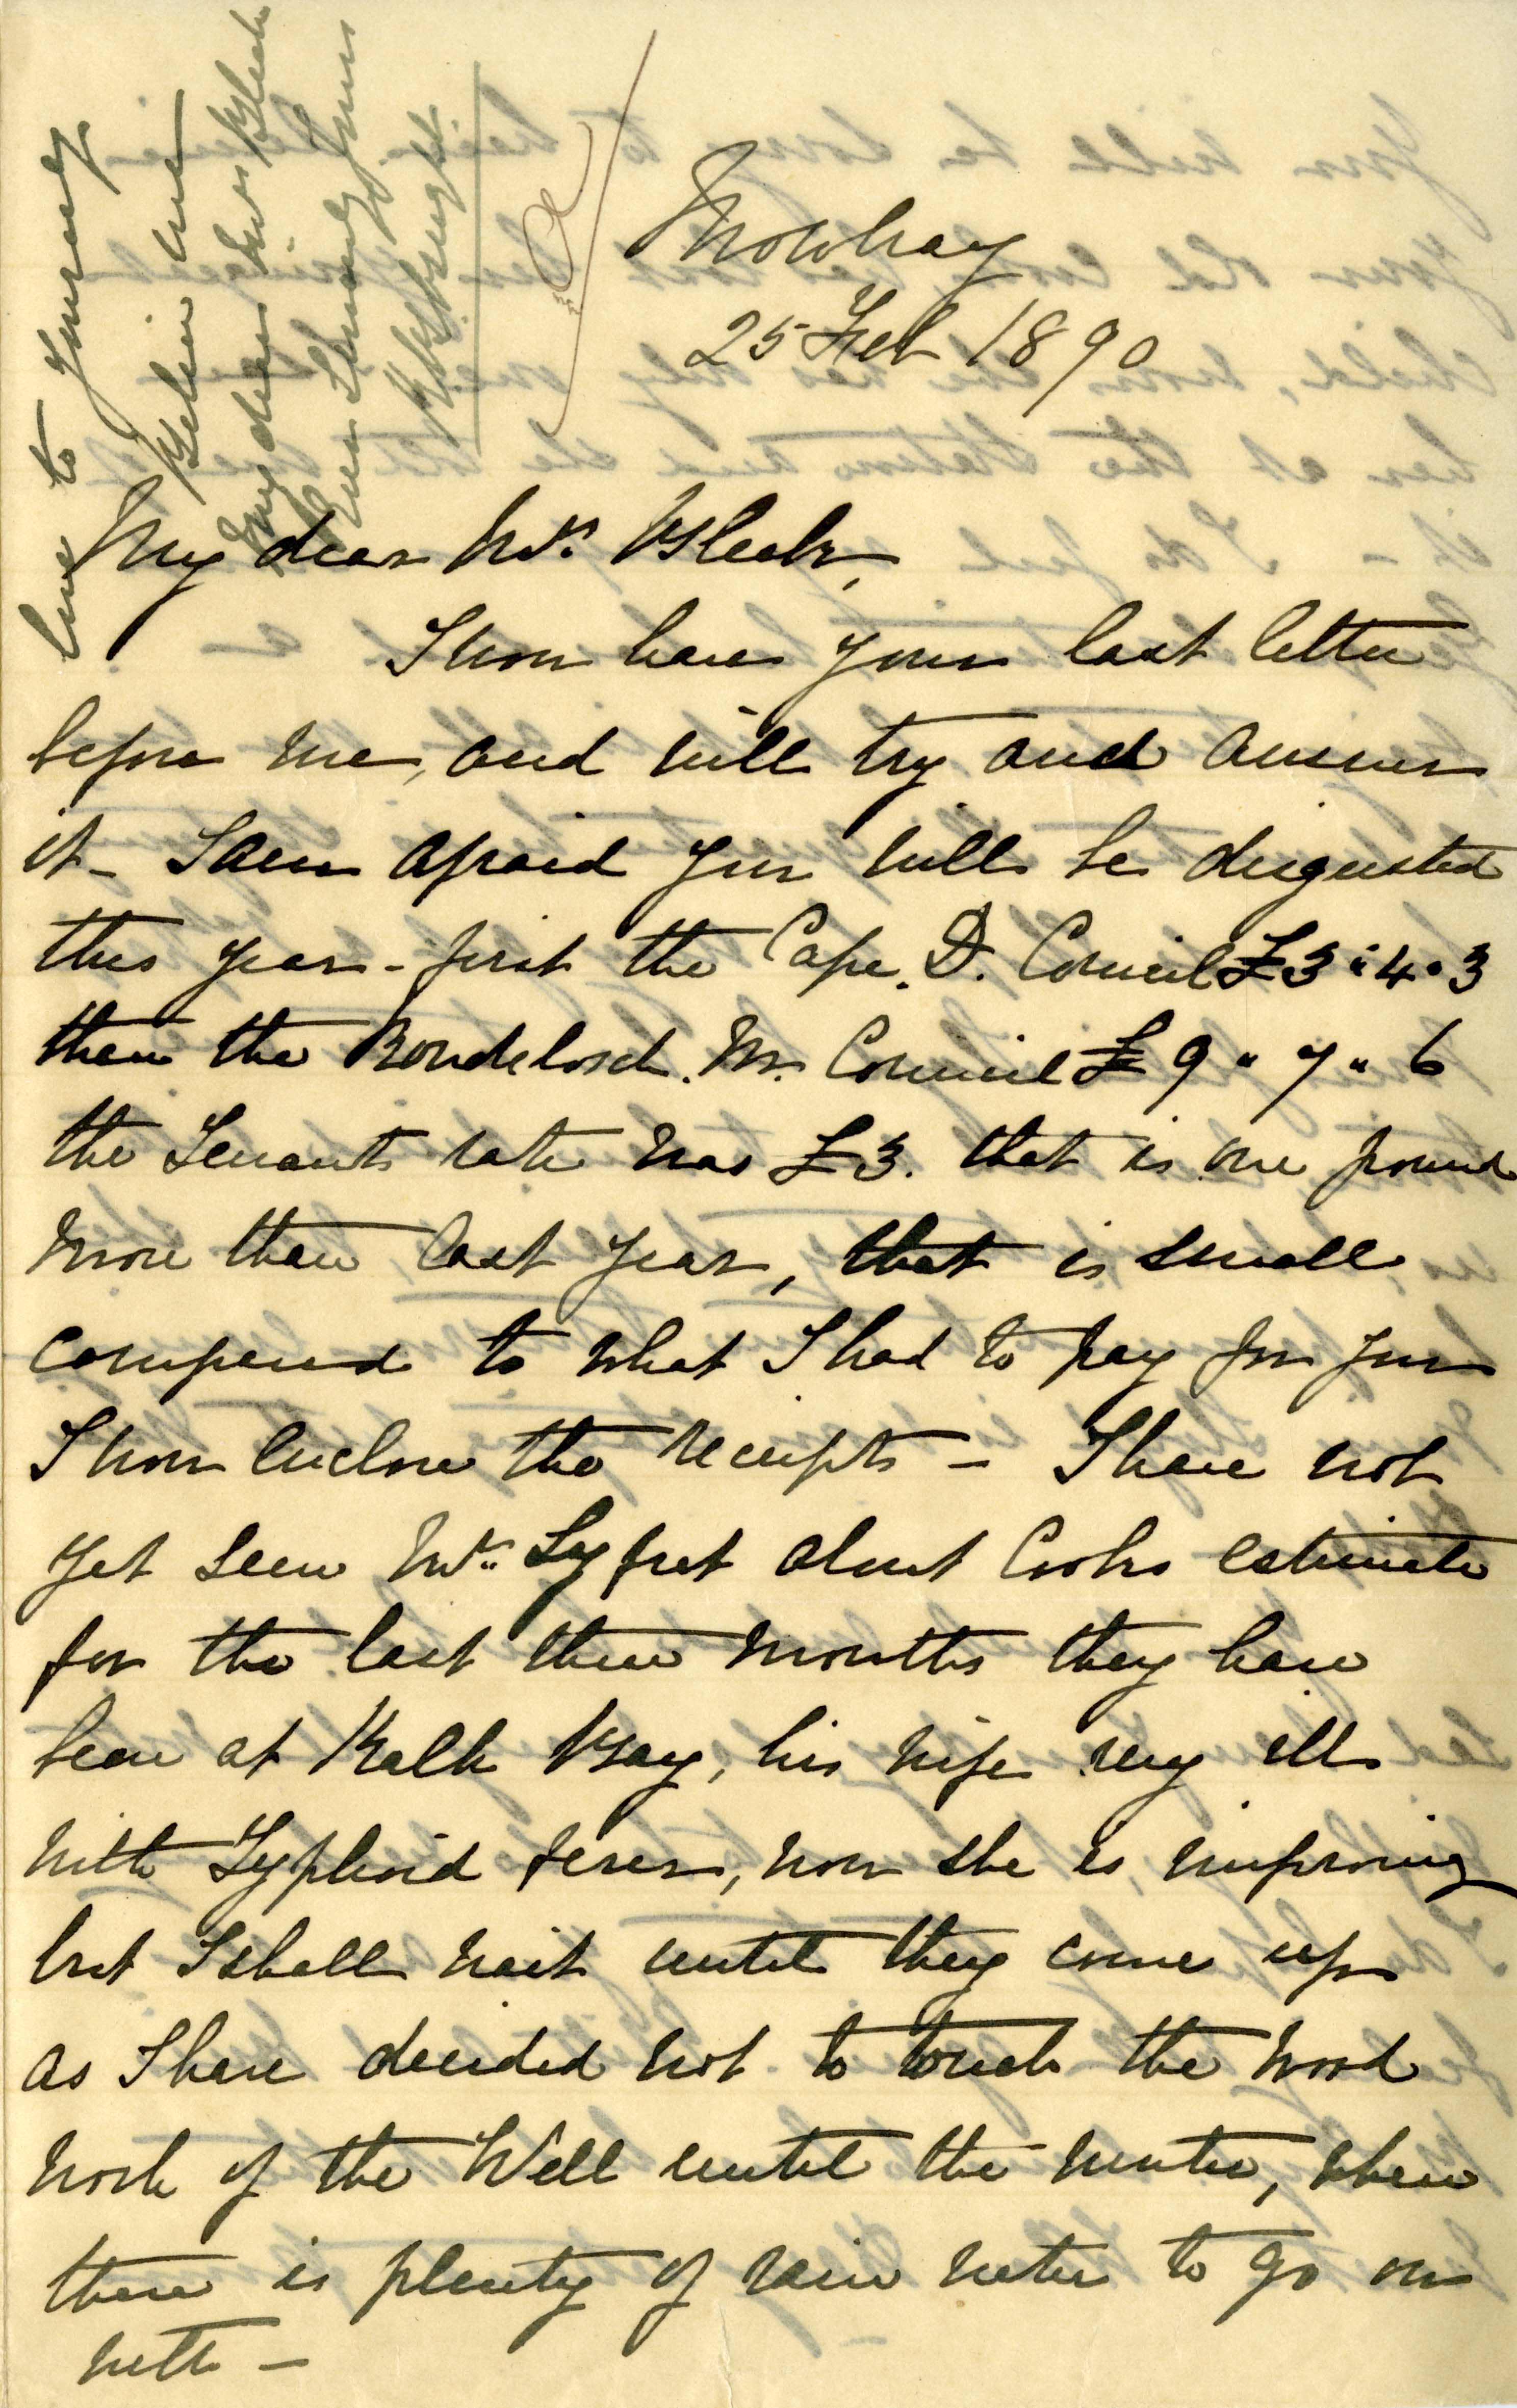 Mowbray
25 Feb 1890
My dear Mrs. Bleek,
I now have your last letter
before me, and will try and answer
it - I am afraid you will be disgusted
this year - first the Cape. D. Council £3 " 4 " 3
then the Rondebosch. M. Council £9 " 7 " 6
the Tenants rate was £3. that is one pound
more than last year, that is small
compared to what I had to pay for you
I now enclose the receipts - I have not
yet seen Mr. Syfret about Cooks estimate
for the last three months they have
been at Kalk Bay, his wife very ill
with Typhoid fever, now she is improving
but I shall wait until they come up
as I have decided not to touch the wood
work of the Well until the winter, when
there is plenty of rain water to go on
with -
love to yourself
Believe me
my dear Mrs Bleek
Ever sincerely yours